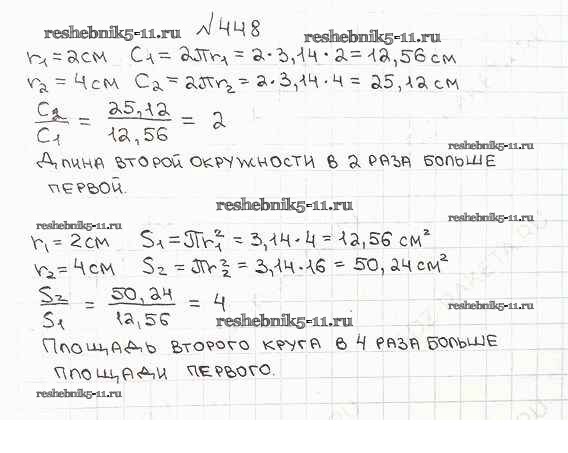 reshebnik5-11.ru №448 reshebnik5-11.ru
r₁=2см C₁=2πr₁=2·3,14·2=12,56см
r₂=4см C₂=2πr₂=2·3,14·4=25,12см
C₂/C₁ = 25,12/12,56 = 2
reshebnik5-11.ru
Длина второй окружности в 2 раза больше
первой.
reshebnik5-11.ru reshebnik5-11.ru
reshebnik5-11.ru
r₁=2см S₁=πr₁²=3,14·4=12,56см²
r₂=4см S₂=πr₂²=3,14·16=50,24см²
S₂/S₁ = 50,24/12,56 = 4
reshebnik5-11.ru
reshebnik5-11.ru
Площадь второго круга в 4 раза больше
площади первого.
reshebnik5-11.ru